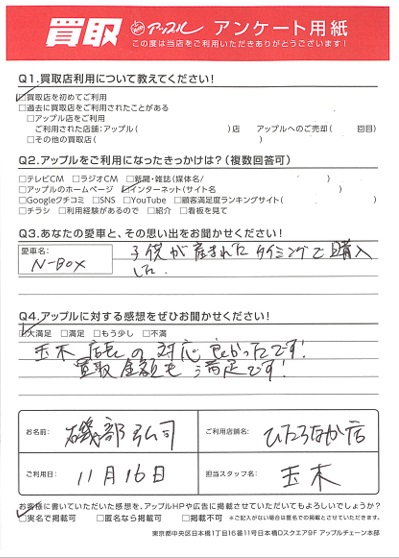 買取 アップル アンケート用紙
この度は当店をご利用いただきありがとうございます!
Q1.買取店利用について教えてください!
□買取店を初めてご利用
□過去に買取店をご利用されたことがある
□アップル店をご利用
ご利用された店舗:アップル( )店 アップルへのご売却( 回目)
□その他の買取店( )
Q2.アップルをご利用になったきっかけは?(複数回答可)
□テレビCM □ラジオCM □新聞・雑誌(媒体名/ )
□アップルのホームページ □インターネット(サイト名 )
□Googleクチコミ □SNS □YouTube □顧客満足度ランキングサイト( )
□チラシ □利用経験があるので □紹介 □看板を見て
Q3.あなたの愛車と、その思い出をお聞かせください!
愛車名: N-BOX
子供が産まれたタイミングで購入
した.
Q4.アップルに対する感想をぜひお聞かせください!
□大満足 □満足 □もう少し □不満
玉木店長の対応良かったです!
買取金額も満足です!
お名前: 磯部弘司 ご利用店舗名: ひたちなか店
ご利用日: 11月16日 担当スタッフ名: 玉木
お客様に書いていただいた感想を、アップルHPや広告に掲載させていただいてもよろしいでしょうか?
□実名で掲載可 □匿名なら掲載可 □掲載不可 ※ご記入がない場合は匿名での掲載とさせていただきます。
東京都中央区日本橋1丁目16番11号日本橋Dスクエア9F アップルチェーン本部